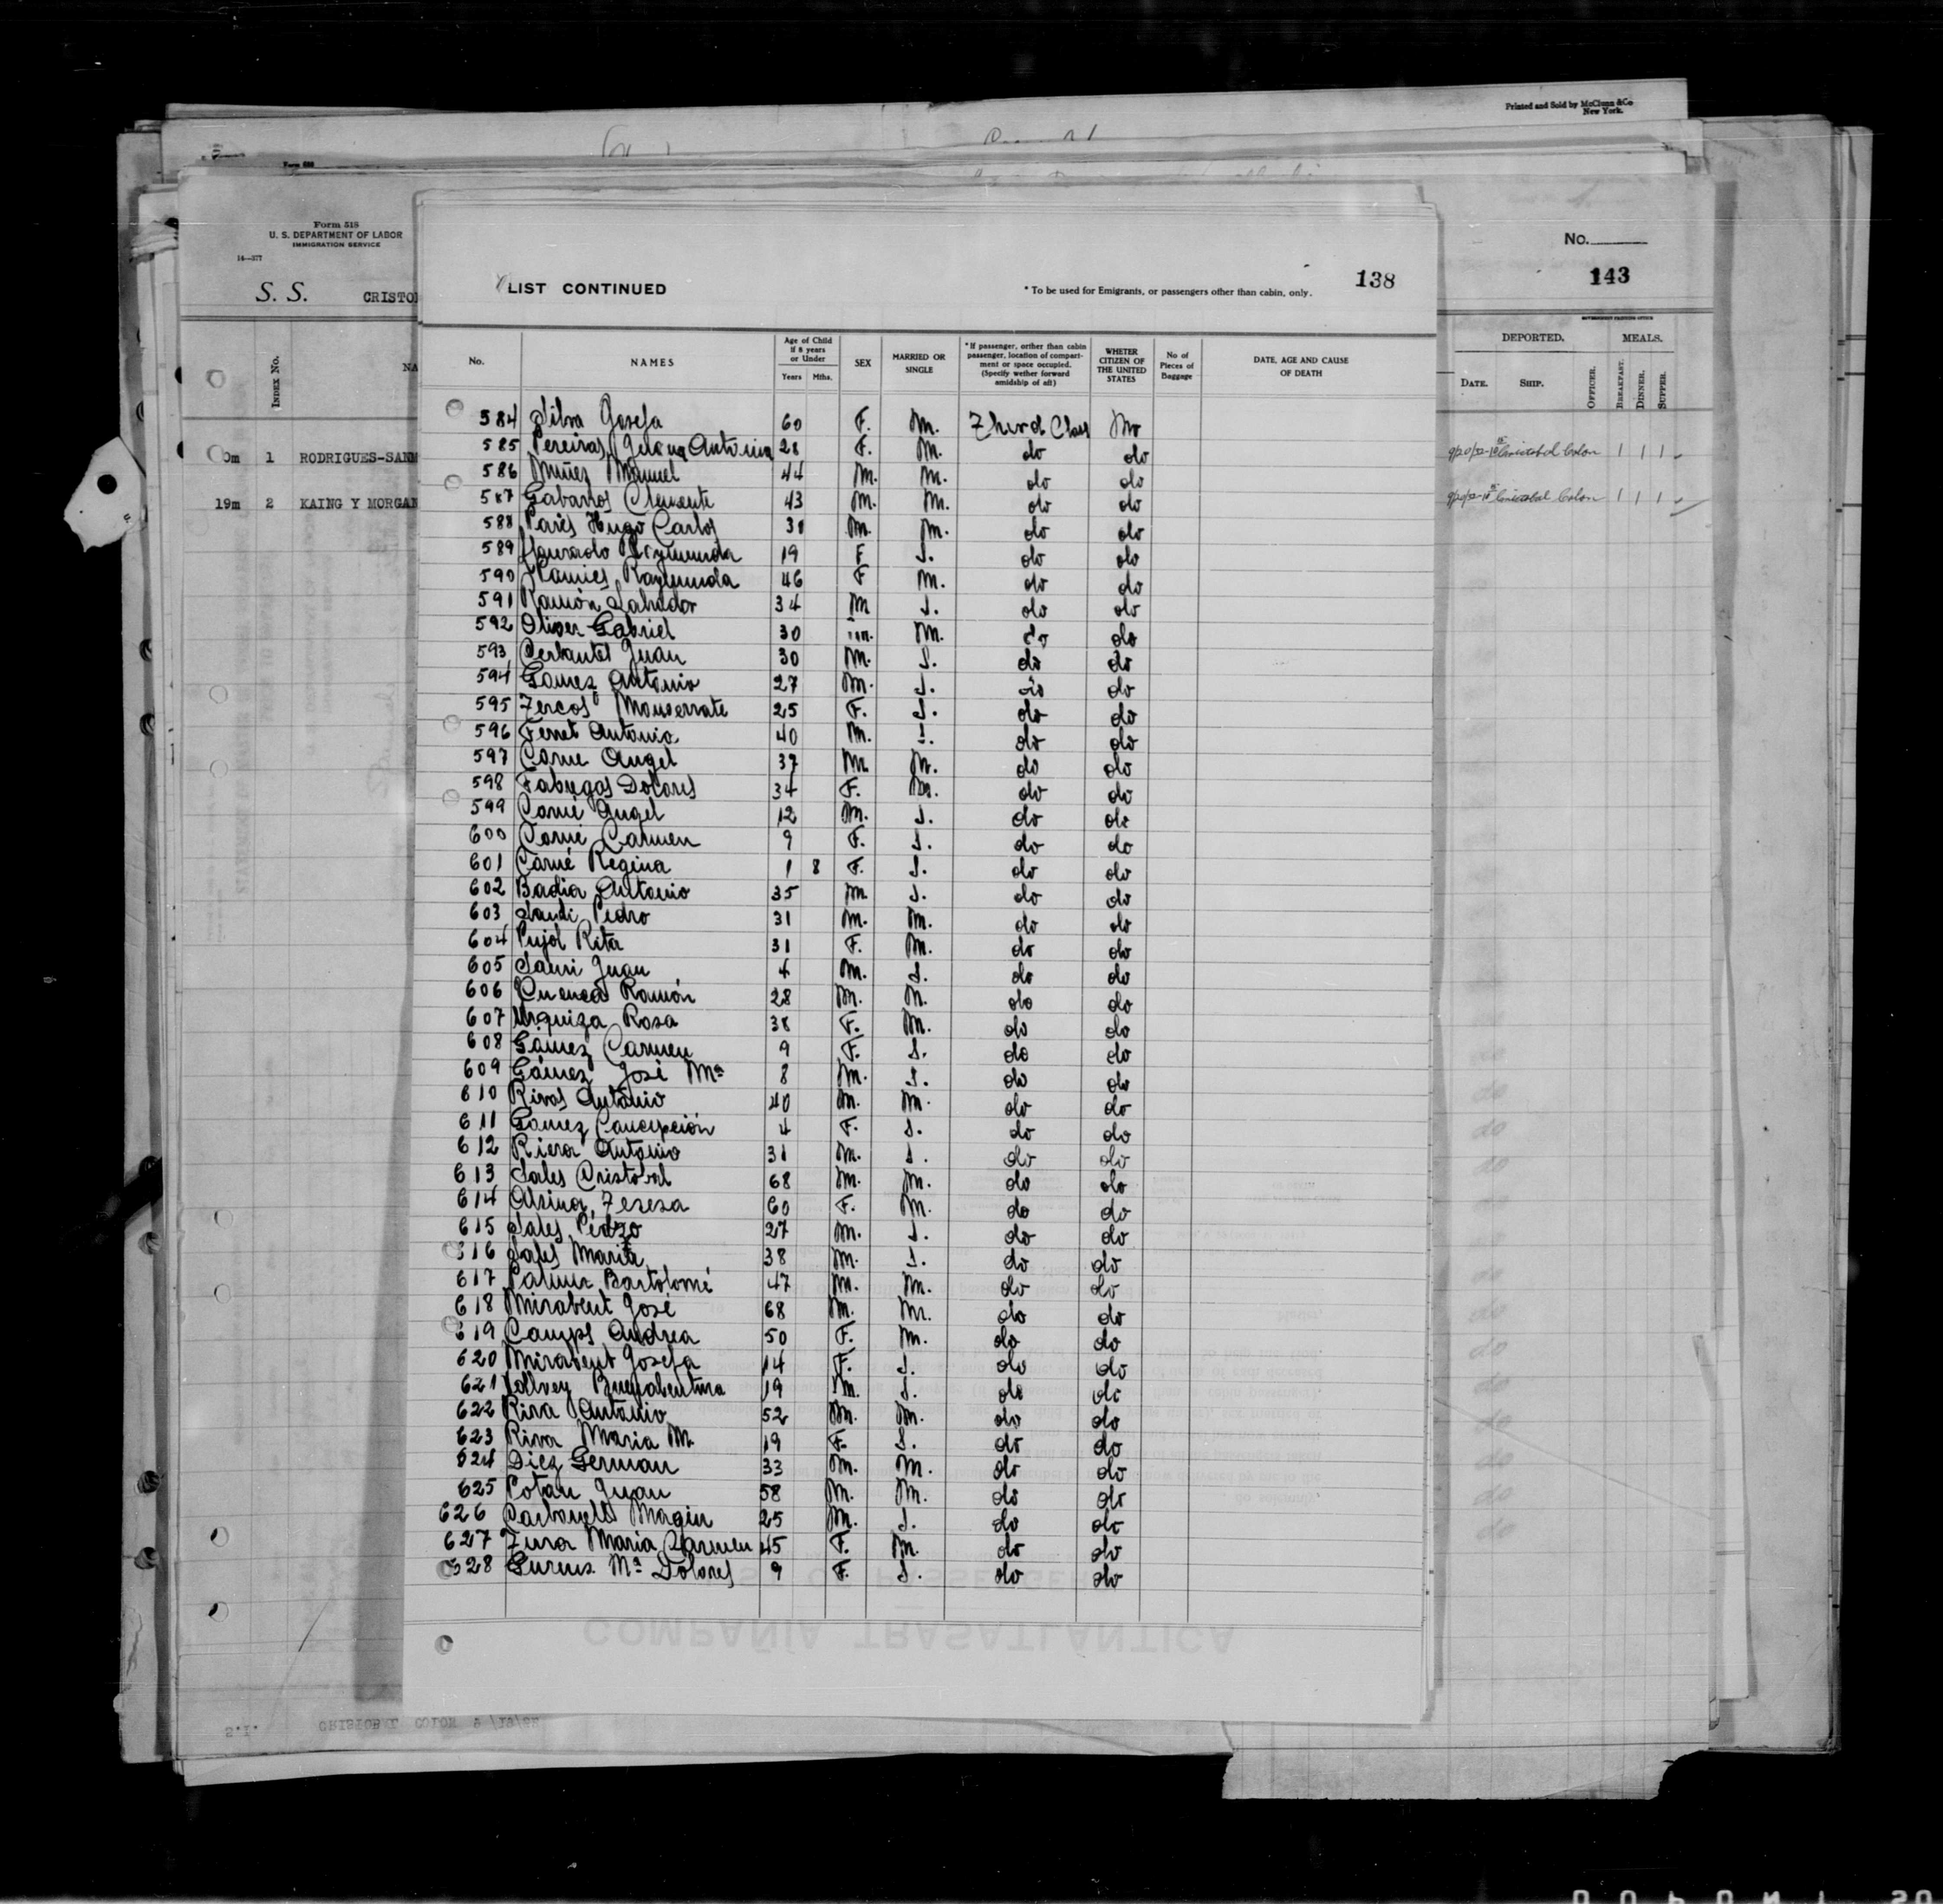 Printed and Sold by McClunn & Co
New York.
Form 518
U. S. DEPARTMENT OF LABOR
IMMIGRATION SERVICE
14—377
S. S. CRISTO
No.
143
INDEX No.
NA
DEPORTED. MEALS.
DATE. SHIP. OFFICER. BREAKFAST. DINNER. SUPPER.
1 RODRIGUES-SAN
Cristobal Colon 1 1 1
19m 2 KAING Y MORGAN
Cristobal Colon 1 1 1
LIST CONTINUED
* To be used for Emigrants, or passengers other than cabin, only.
138
No.
NAMES
Age of Child
if 8 years
or Under
Years Mths.
SEX
MARRIED OR
SINGLE
* If passenger, orther than cabin
passenger, location of compart-
ment or space occupied.
(Specify wether forward
amidship of aft)
WHETER
CITIZEN OF
THE UNITED
STATES
No of
Pieces of
Baggage
DATE, AGE AND CAUSE
OF DEATH
584 Silva Josefa 60 F. M. Third Class No
585 Pereiras 28 F. M. do do
586 Muñez Manuel 44 M. M. do do
587 Gabarros Clemente 43 M. M. do do
588 Parés Hugo Carlos M. M. do do
589 19 F S. do do
590 Raymunda 46 F M. do do
591 Ramón Salvador 34 M S. do do
592 Oliver Gabriel 30 m. M. do do
593 Cerbantes Juan 30 M. S. do do
594 Gomez Antonio 27 M. S. do do
595 Tercos Monserrate 25 F. S. do do
596 Ferret Antonio 40 M. S. do do
597 Carné Angel 37 M M. do do
598 Fabregas Dolores 34 F. M. do do
599 Carné Angel 12 M. S. do do
600 Carné Carmen 9 F. S. do do
601 Carné Regina 1 8 F. S. do do
602 Badia Antonio 35 M S. do do
603 Pedro 31 M. M. do do
604 Pujol Rita 31 F. M. do do
605 Juan 4 M. S. do do
606 Cuenca Ramón 28 M. M. do do
607 Urquiza Rosa 38 F. M. do do
608 Gámez Carmen 9 F. S. do do
609 Gámez José Mª 8 M. S. do do
610 Rivas Antonio 40 M. M. do do
611 Gamez Concepción 4 F. S. do do
612 Riera Antonio 31 M. S. do do
613 Sales Cristobal 68 M. M. do do
614 Alsina Teresa 60 F. M. do do
615 Sales Pedro 27 M. S. do do
616 Sales 38 M. S. do do
617 Palmer Bartolomé 47 M. M. do do
618 Mirabent José 68 M. M. do do
619 Camps Andrea 50 F. M. do do
620 Mirabent Josefa 14 F. S. do do
621 Vallvey Buenabentura 19 M. S. do do
622 Riva Antonio 52 M. M. do do
623 Riva Maria M. 19 F. S. do do
624 Diez German 33 M. M. do do
625 Juan 58 M. M. do do
626 Carbonell Magin 25 M. S. do do
627 Maria Carmen 45 F. M. do do
628 Mª Dolores 9 F. S. do do
COMPAÑÍA TRASATLÁNTICA
S.I. CRISTOBAL COLON